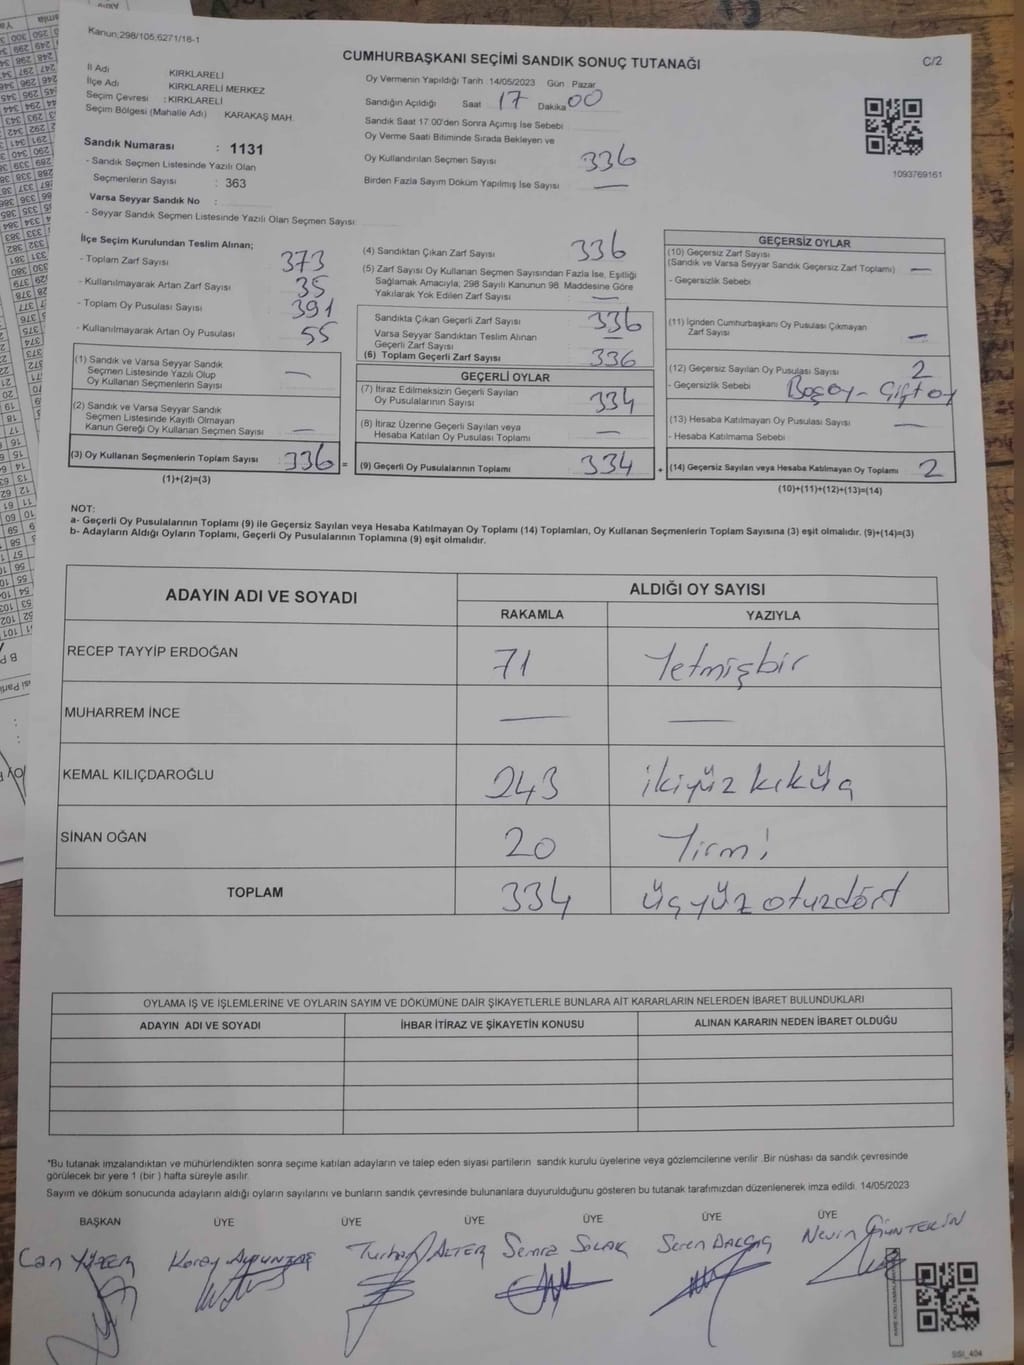 Kanun;298/105,6271/16-1
CUMHURBAŞKANI SEÇİMİ SANDIK SONUÇ TUTANAĞI
C/2
İl Adı KIRKLARELİ
İlçe Adı KIRKLARELİ MERKEZ
Seçim Çevresi : KIRKLARELİ
Seçim Bölgesi (Mahalle Adı) KARAKAŞ MAH.
Oy Vermenin Yapıldığı Tarih :14/05/2023 Gün : Pazar
Sandığın Açıldığı Saat 17 Dakika 00
Sandık Saat 17:00'den Sonra Açımış İse Sebebi
Oy Verme Saati Bitiminde Sırada Bekleyen ve
Oy Kullandırılan Seçmen Sayısı 336
Birden Fazla Sayım Döküm Yapılmış İse Sayısı —
1093769161
Sandık Numarası : 1131
- Sandık Seçmen Listesinde Yazılı Olan
Seçmenlerin Sayısı : 363
Varsa Seyyar Sandık No :
- Seyyar Sandık Seçmen Listesinde Yazılı Olan Seçmen Sayısı:
İlçe Seçim Kurulundan Teslim Alınan;
- Toplam Zarf Sayısı 373
- Kullanılmayarak Artan Zarf Sayısı 35
- Toplam Oy Pusulası Sayısı 391
- Kullanılmayarak Artan Oy Pusulası 55
(1) Sandık ve Varsa Seyyar Sandık
Seçmen Listesinde Yazılı Olup
Oy Kullanan Seçmenlerin Sayısı —
(2) Sandık ve Varsa Seyyar Sandık
Seçmen Listesinde Kayıtlı Olmayan
Kanun Gereği Oy Kullanan Seçmen Sayısı —
(3) Oy Kullanan Seçmenlerin Toplam Sayısı 336 =
(1)+(2)=(3)
(4) Sandıktan Çıkan Zarf Sayısı 336
(5) Zarf Sayısı Oy Kullanan Seçmen Sayısından Fazla İse, Eşitliği
Sağlamak Amacıyla; 298 Sayılı Kanunun 98. Maddesine Göre
Yakılarak Yok Edilen Zarf Sayısı —
Sandıkta Çıkan Geçerli Zarf Sayısı 336
Varsa Seyyar Sandıktan Teslim Alınan
Geçerli Zarf Sayısı —
(6) Toplam Geçerli Zarf Sayısı 336
GEÇERLİ OYLAR
(7) İtiraz Edilmeksizin Geçerli Sayılan
Oy Pusulalarının Sayısı 334
(8) İtiraz Üzerine Geçerli Sayılan veya
Hesaba Katılan Oy Pusulası Toplamı —
(9) Geçerli Oy Pusulalarının Toplamı 334 +
GEÇERSİZ OYLAR
(10) Geçersiz Zarf Sayısı
(Sandık ve Varsa Seyyar Sandık Geçersiz Zarf Toplamı) —
- Geçersizlik Sebebi
(11) İçinden Cumhurbaşkanı Oy Pusulası Çıkmayan
Zarf Sayısı —
(12) Geçersiz Sayılan Oy Pusulası Sayısı 2
- Geçersizlik Sebebi Boşoy - Çift oy
(13) Hesaba Katılmayan Oy Pusulası Sayısı —
- Hesaba Katılmama Sebebi
(14) Geçersiz Sayılan veya Hesaba Katılmayan Oy Toplamı 2
(10)+(11)+(12)+(13)=(14)
NOT:
a- Geçerli Oy Pusulalarının Toplamı (9) ile Geçersiz Sayılan veya Hesaba Katılmayan Oy Toplamı (14) Toplamları, Oy Kullanan Seçmenlerin Toplam Sayısına (3) eşit olmalıdır. (9)+(14)=(3)
b- Adayların Aldığı Oyların Toplamı, Geçerli Oy Pusulalarının Toplamına (9) eşit olmalıdır.
ADAYIN ADI VE SOYADI
ALDIĞI OY SAYISI
RAKAMLA YAZIYLA
RECEP TAYYİP ERDOĞAN 71 Yetmişbir
MUHARREM İNCE — —
KEMAL KILIÇDAROĞLU 243 ikiyüz kıküç
SİNAN OĞAN 20 Yirmi
TOPLAM 334 üçyüz otuzdört
OYLAMA İŞ VE İŞLEMLERİNE VE OYLARIN SAYIM VE DÖKÜMÜNE DAİR ŞİKAYETLERLE BUNLARA AİT KARARLARIN NELERDEN İBARET BULUNDUKLARI
ADAYIN ADI VE SOYADI İHBAR İTİRAZ VE ŞİKAYETİN KONUSU ALINAN KARARIN NEDEN İBARET OLDUĞU
*Bu tutanak imzalandıktan ve mühürlendikten sonra seçime katılan adayların ve talep eden siyasi partilerin sandık kurulu üyelerine veya gözlemcilerine verilir .Bir nüshası da sandık çevresinde
görülecek bir yere 1 (bir ) hafta süreyle asılır.
Sayım ve döküm sonucunda adayların aldığı oyların sayılarını ve bunların sandık çevresinde bulunanlara duyurulduğunu gösteren bu tutanak tarafımızdan düzenlenerek imza edildi. 14/05/2023
BAŞKAN ÜYE ÜYE ÜYE ÜYE ÜYE ÜYE
Can YÜZER Koray Turhan ALTER Semra SOLAK Seren DALGIÇ Nevin GÜNTEKİN
SSI_404